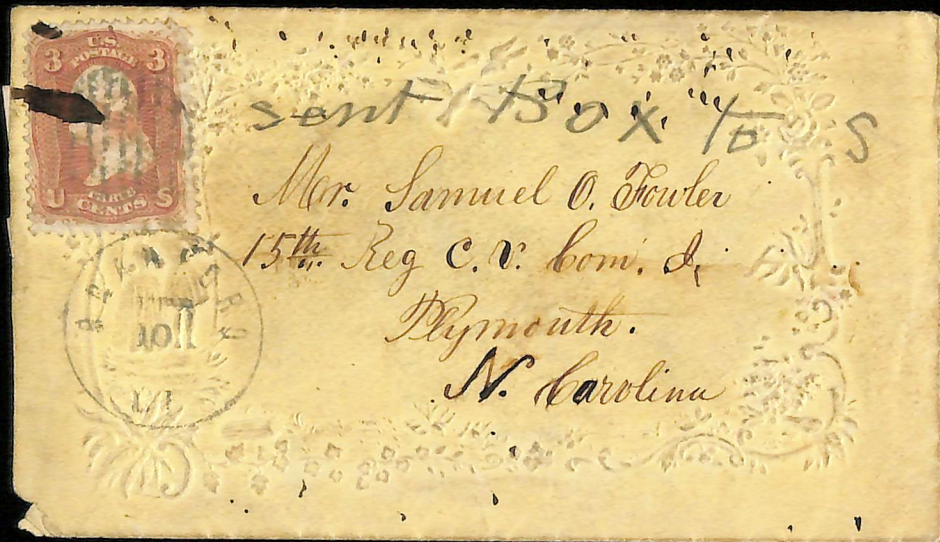 3 U.S. 3
POSTAGE
U THREE S
CENTS
sent 1 Box to S
Mr. Samuel O. Fowler
15th Reg C. V. Com. I,
Plymouth.
N. Carolina
10